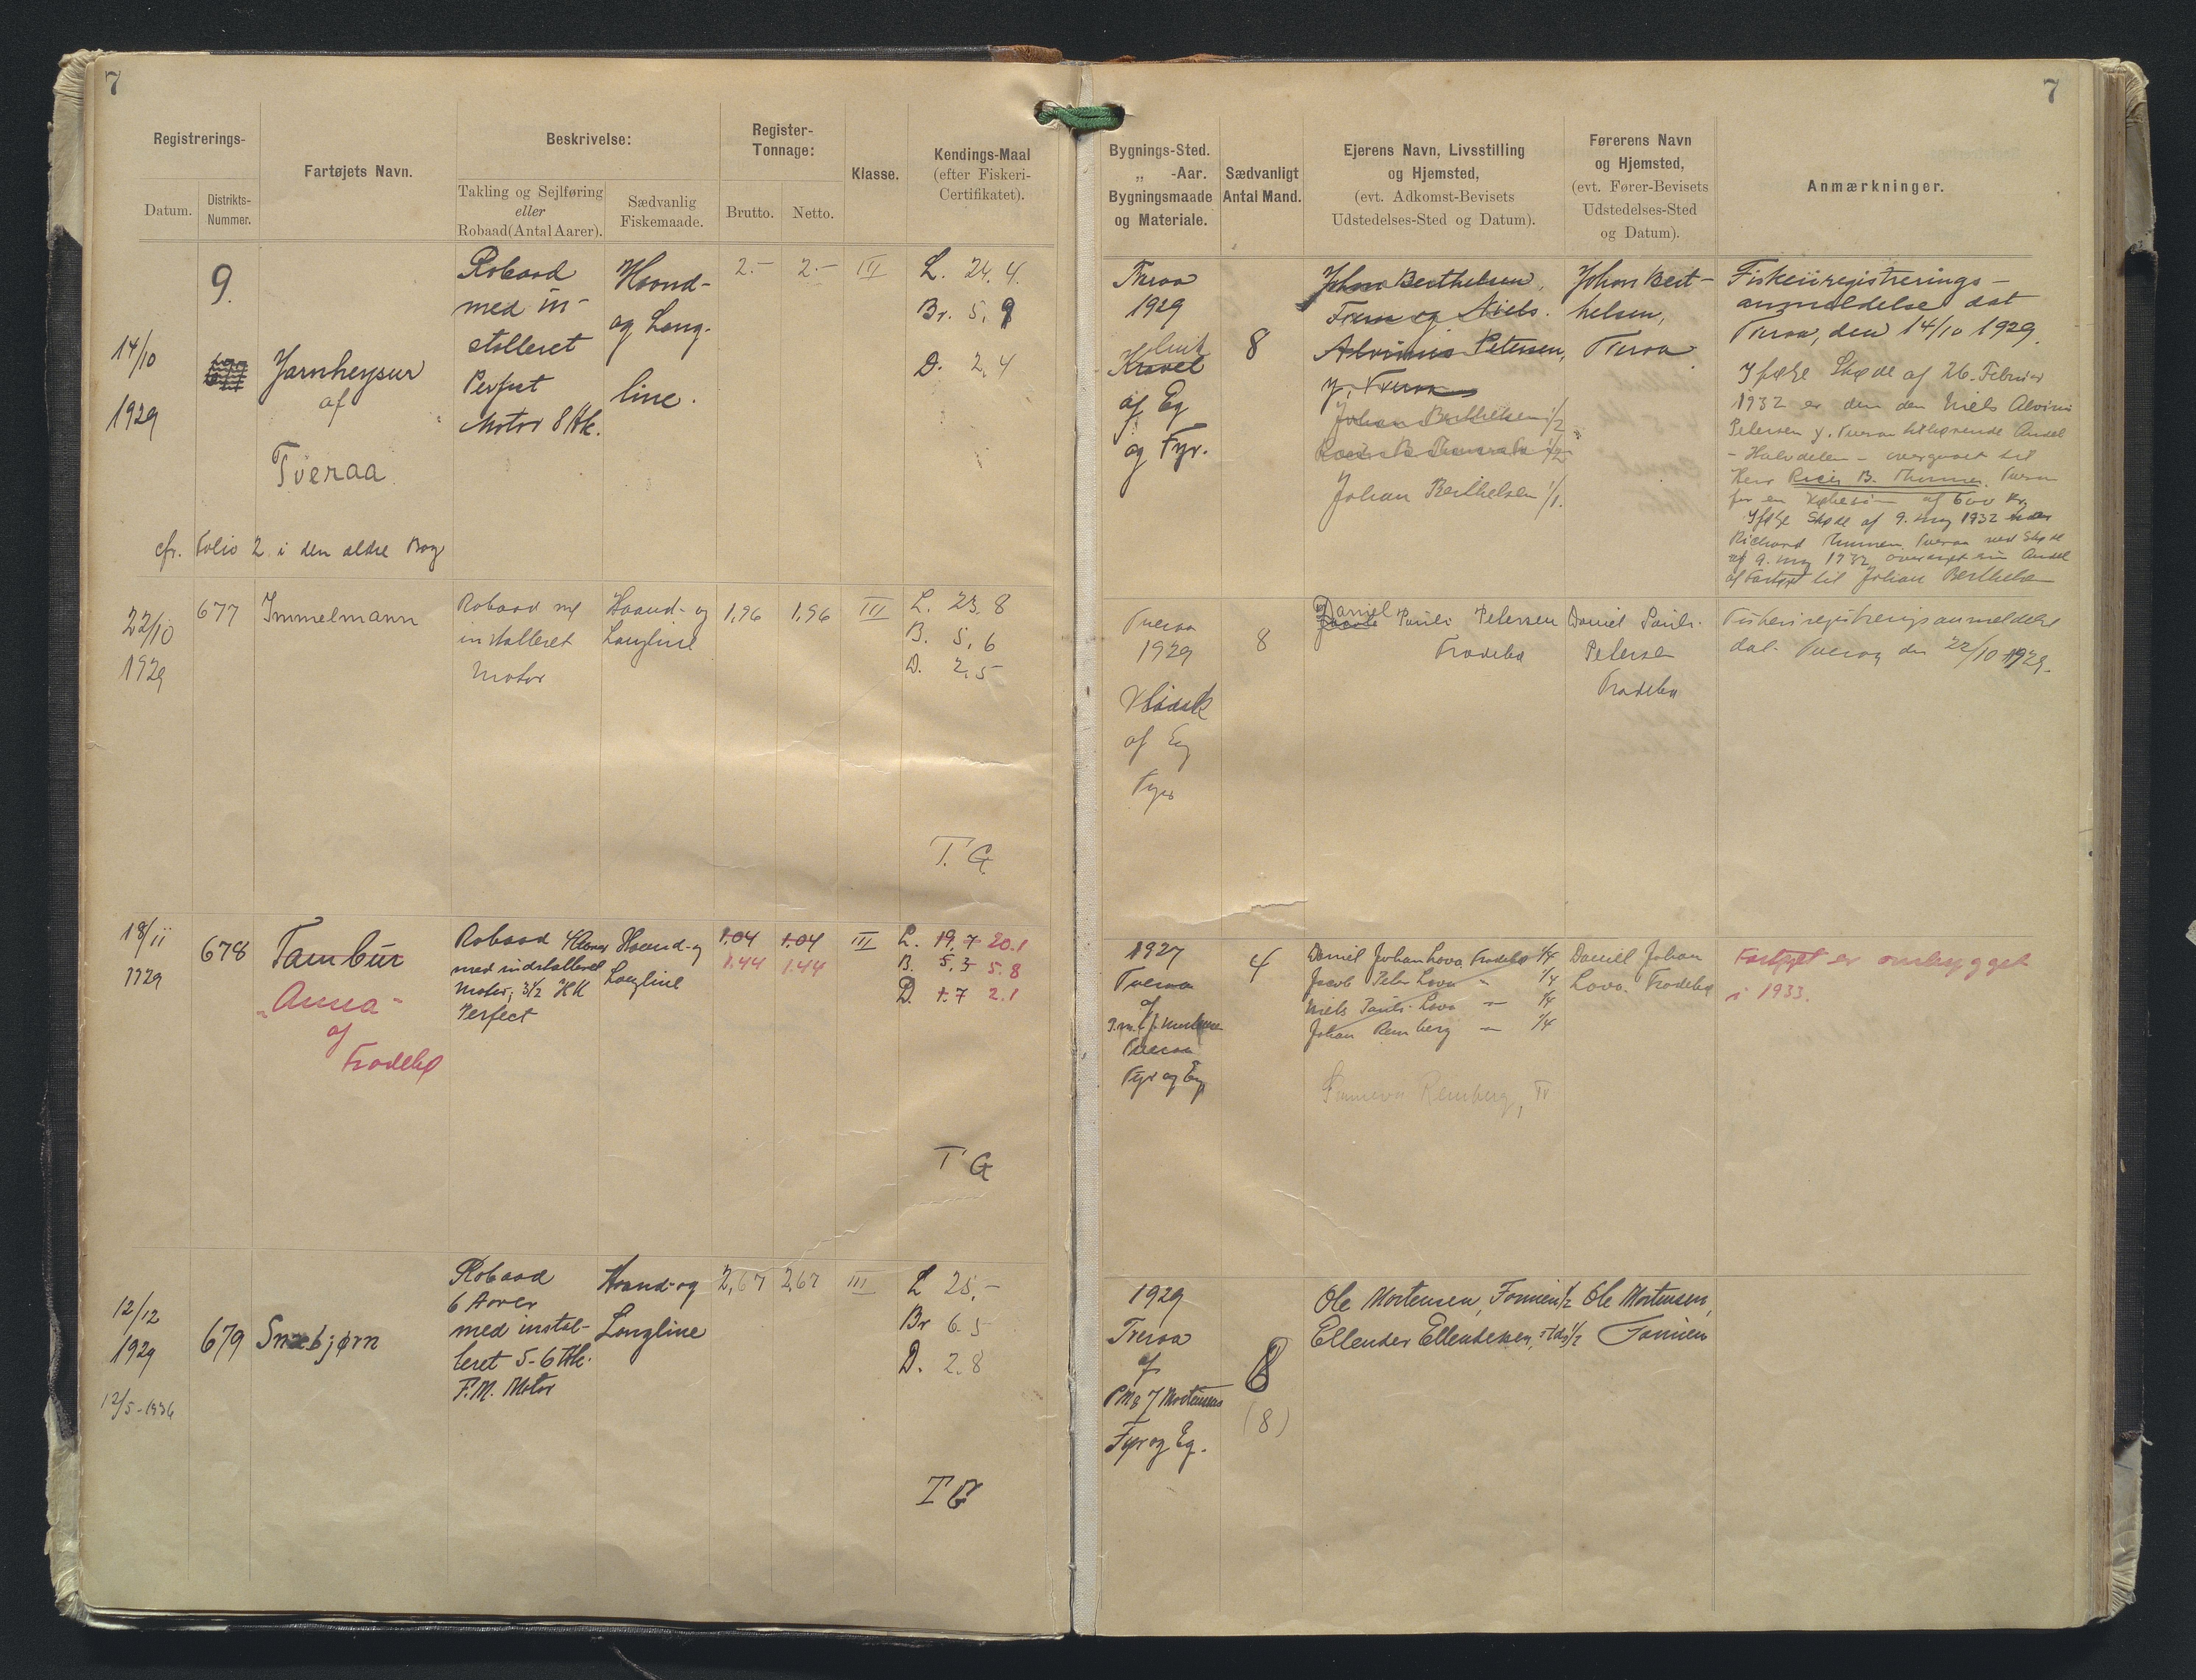 7
7
Registrerings-
Datum.
Distrikts-
Nummer.
Fartøjets Navn.
Beskrivelse:
Takling og Sejlføring
eller
Robaad (Antal Aarer).
Sædvanlig
Fiskemaade.
Register-
Tonnage:
Brutto.
Netto.
Klasse.
Kendings-Maal
(efter Fiskeri-
Certifikatet).
Bygnings-Sted.
„ -Aar.
Bygningsmaade
og Materiale.
Sædvanligt
Antal Mand.
Ejerens Navn, Livsstilling
og Hjemsted,
(evt. Adkomst-Bevisets
Udstedelses-Sted og Datum).
Førerens Navn
og Hjemsted,
(evt. Fører-Bevisets
Udstedelses-Sted
og Datum).
Anmærkninger.
14/10
1929
9.
Jarnheysur
af
Tveraa
cfr. Folio 2 i den ældre Bog
Robaad
med in-
stalleret
Perfect
Motor 8 Hk.
Haand-
og Lang-
line.
2.-
2.-
III
L. 24.4
Br. 5.9
D. 2,4
Tveraa
1929
Kravel
af Eg
og Fyr.
8
Johan Berthelsen,
og Niels
Petersen,
Johan Berthelsen 1/2
Johan Berthelsen 1/1.
Johan Bert-
helsen,
Tveraa
Fiskeriregistrerings-
anmeldelse dat
Tveraa, den 14/10 1929.
Ifølge Skøde af 26. Februar
1932 er den den Niels Alvinus
Petersen y. Tveraa tilhørende Andel
- Halvdelen - overgaaet til
Herr B. Thomsen, Tveraa
for en Købesum af 600 Kr.
Ifølge Skøde af 9. maj 1932 har
Richard Thomsen, Tveraa ved Skøde
af 9. maj 1932 overdraget sin Andel
af Fartøjet til Johan Berthelsen
22/10
1929
677
Immelmann
Robaad m/
installeret
Motor
Haand- og
Langline
1,96
1,96
III
L. 23.8
B. 5,6
D. 2,5
T.G
Tveraa
1929
af Eg
Fyr
8
Daniel Pauli Petersen
Trodebø
Daniel Pauli
Petersen
Trodebø
Fiskeriregistreringsanmeldelse
dat. Tveraa den 22/10 1929.
18/11
1929
678
Tambur
"Anna"
af
Trodebø
Robaad 4 Aarer
med indstalleret
Motor; 3½ HK
Perfect
Haand- og
Langline
1.04 1.04
1.44 1.44
III
L. 19.7 20.1
B. 5.3 5.8
D. 1.7 2.1
T G
1927
Tveraa
af
Tveraa
Fyr og Eg
4
Daniel Johan Lova Trodebø 1/4
Jacob Peter Lova - 1/4
Niels Pauli Lova - 1/4
Johan Remberg - 1/4
Remberg, Tr
Daniell Johan
Lova. Trodebø
Fartøjet er ombygget
i 1933.
12/12
1929
12/5-1936
679
Snæbjørn
Robaad
6 Aarer
med instal-
leret 5-6 Hk.
F.M. Motor
Haand- og
Langline
2,67
2,67
III
L 25,-
Br 6.5
D. 2.8
T G
1929
Tveraa
af
PM & J Mortensens
Fyr og Eg.
8
(8)
Ole Mortensen, Famien 1/2
Ellender Ellendsen, stds 1/2
Ole Mortensen,
Famien